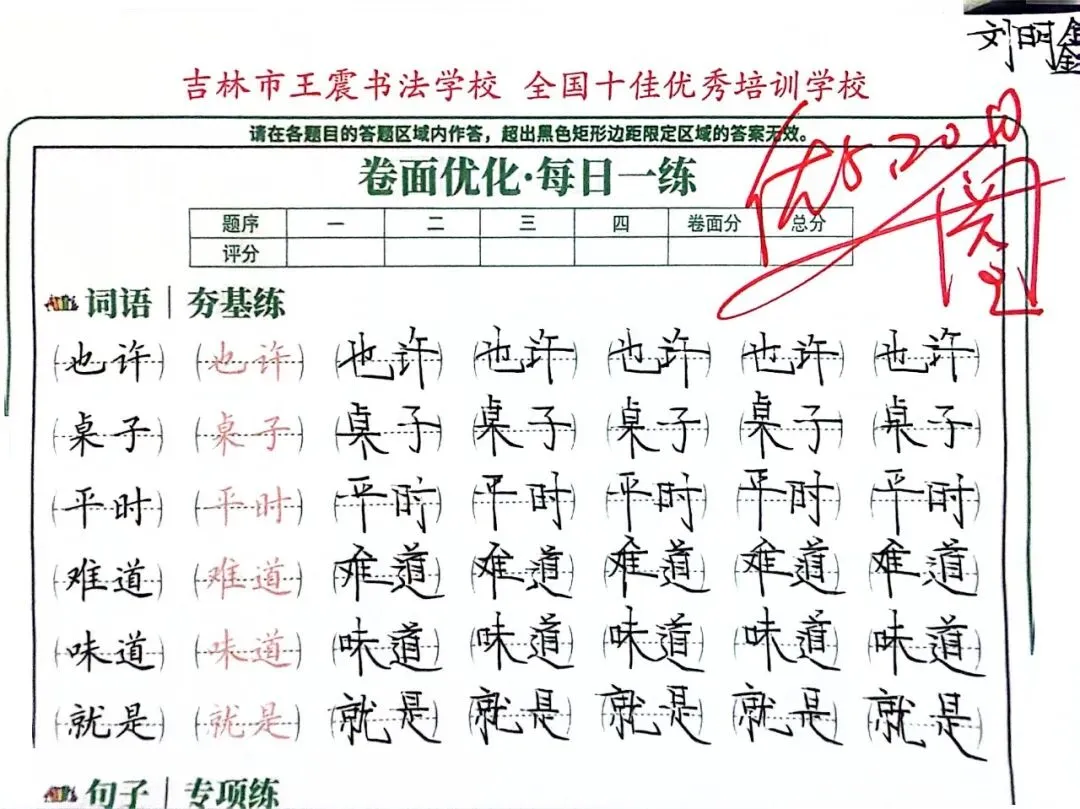 刘明鑫
吉林市王震书法学校 全国十佳优秀培训学校
请在各题目的答题区域内作答，超出黑色矩形边距限定区域的答案无效。
卷面优化·每日一练
题序 一 二 三 四 卷面分 总分
评分
优
阅
词语 | 夯基练
(也许) (也许) (也许) (也许) (也许) (也许) (也许)
(桌子) (桌子) (桌子) (桌子) (桌子) (桌子) (桌子)
(平时) (平时) (平时) (平时) (平时) (平时) (平时)
(难道) (难道) (难道) (难道) (难道) (难道) (难道)
(味道) (味道) (味道) (味道) (味道) (味道) (味道)
(就是) (就是) (就是) (就是) (就是) (就是) (就是)
句子 | 专项练